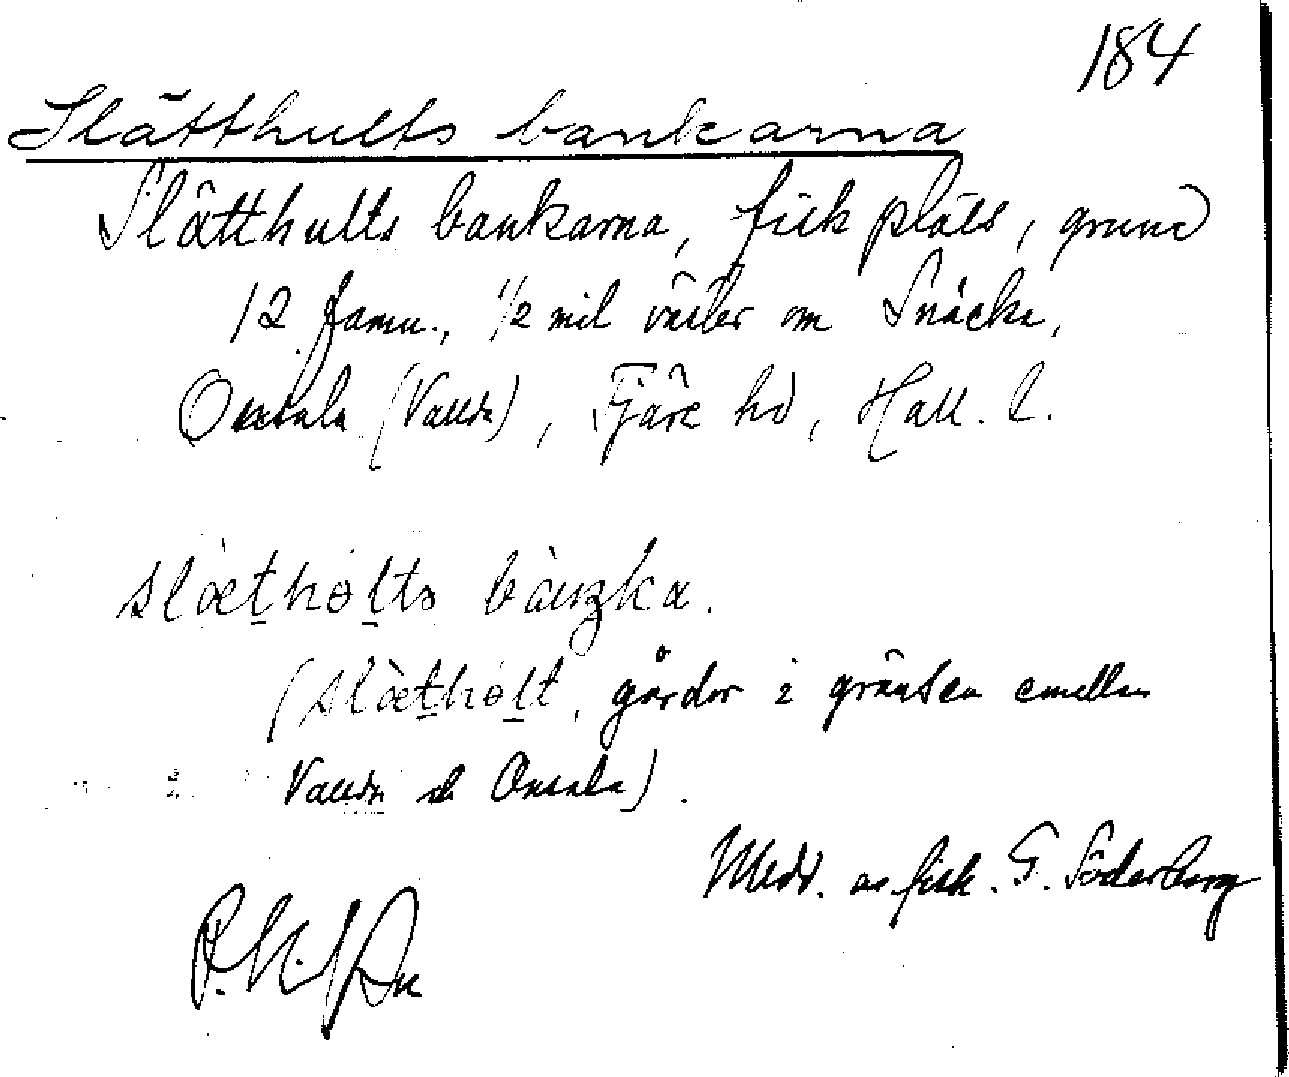 184
Slätthults bankarna
Slätthults bankarna, fisk plats, grund
12 famn., 1/2 mil väster om Snäcke,
Onsala (Vallda), Fjäre hd, Hall. l.
slæthølts baŋka.
(slæthølt, gårdar i gränsen emellan
Vallda o Onsala).
Medd. av fisk. G. Söderberg